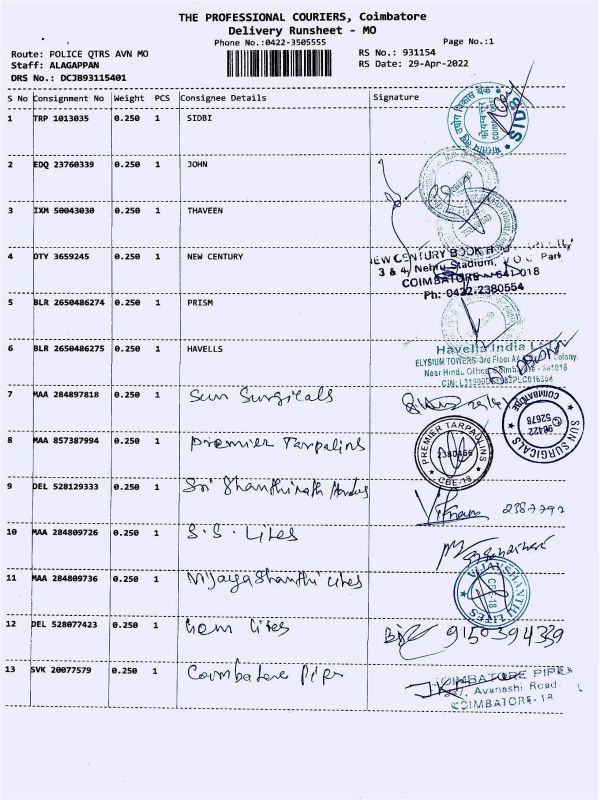 THE PROFESSIONAL COURIERS, Coimbatore
Delivery Runsheet - MO
Phone No.:0422-3505555 Page No.:1
Route: POLICE QTRS AVN MO RS No.: 931154
Staff: ALAGAPPAN RS Date: 29-Apr-2022
DRS No.: DCJB93115401
S No Consignment No Weight PCS Consignee Details Signature
1 TRP 1013035 0.250 1 SIDBI
SIDBI
2 EDQ 23760339 0.250 1 JOHN
3 IXM 50043030 0.250 1 THAVEEN
4 OTY 3659245 0.250 1 NEW CENTURY
NEW CENTURY BOOK
3 & 4, Nehru Stadium, V O C Park
COIMBATORE - 641 018
Ph: 0422-2380554
5 BLR 2650486274 0.250 1 PRISM
6 BLR 2650486275 0.250 1 HAVELLS
Havells India
ELYSIUM TOWERS 3rd Floor Colony.
Near Hindu Office, Coimbatore - 641018
7 MAA 284897818 0.250 1 Sun Surgicals
SUN SURGICALS
98422
52678
COIMBATORE
8 MAA 857387994 0.250 1 Premier Tarpalins
PREMIER TARPAULINS
2380456
CBE-18
9 DEL 528129333 0.250 1 Sri Shanthinath
2387792
10 MAA 284809726 0.250 1 S.S. Lites
11 MAA 284809736 0.250 1 Vijayashanthi Lites
VIJAYSHANTHI LITES
CBE-18
12 DEL 528077423 0.250 1 Gem Lites
9150394339
13 SVK 20077579 0.250 1 Coimbatore Pipe
COIMBATORE PIPE
7, Avanashi Road
COIMBATORE-18